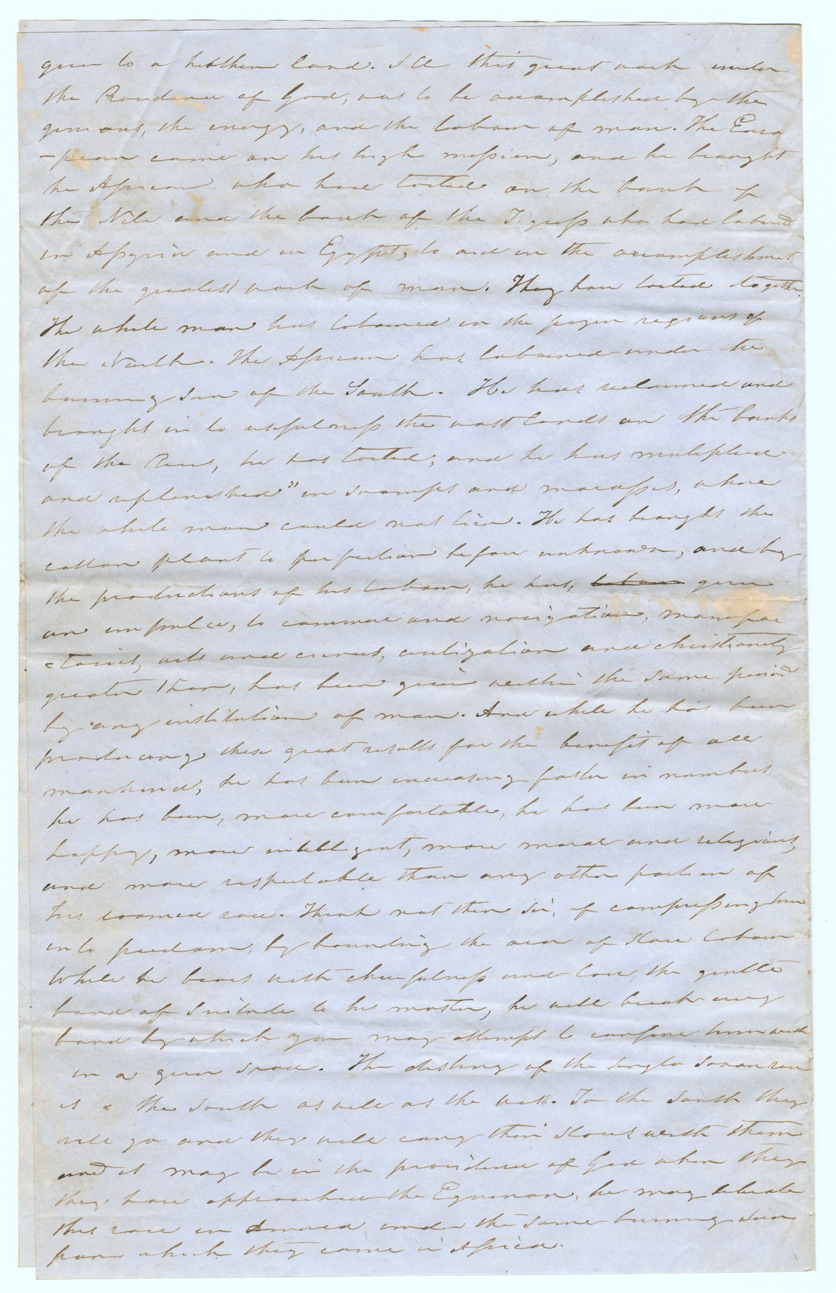 given to a heathen land. All this great work under
the Providence of God, was to be accomplished by the
genious, the energy, and the labour of man. The Euro
-pean came on his high mission, and he brought
the African who had toiled on the bank of
the Nile and the bank of the Tigress who had labored
in Assyria and in Egypt, to aid in the accomplishment
of the greatest work of man. They have toiled together.
The white man has laboured in the frozen regions of
the North. The African has laboured under the
burning Sun of the South. He has reclaimed and
brought in to usefulness the vast lands on the banks
of the River, he has toiled, and he has multiplied
and replenished" in swamps and morasses, where
the white man could not live. He has brought the
cotton plant to perfection before unknown, and by
the productions of his labour, he has, labour given
an impulse, to commerce and navigation, manufac
-tories, arts and sciences, civilization and christianity
greater than, has been given within the same period
by any institution of man. And while he has been
producing these great results for the benefit of all
mankind, he has been increasing faster in numbers
he has been, more comfortable, he has been more
happy, more intelligent, more moral and religious,
and more respectable than any other portion of
his race. Think not then Sir, of compressing him
in to freedom, by bounding the area of slave labour
While he bears with cheerfulness and love, the gentle
band of Servitude to his master, he will break every
band by which you may attempt to confine him with
in a given space. The destiny of the Anglo Saxon race
is to the South as well as the West. To the South they
will go and they will carry their slaves with them
and it may be in the providence of God when they
they have approached the Equator, he may
this race in America under the same burning Sun
from which they came in Africa.